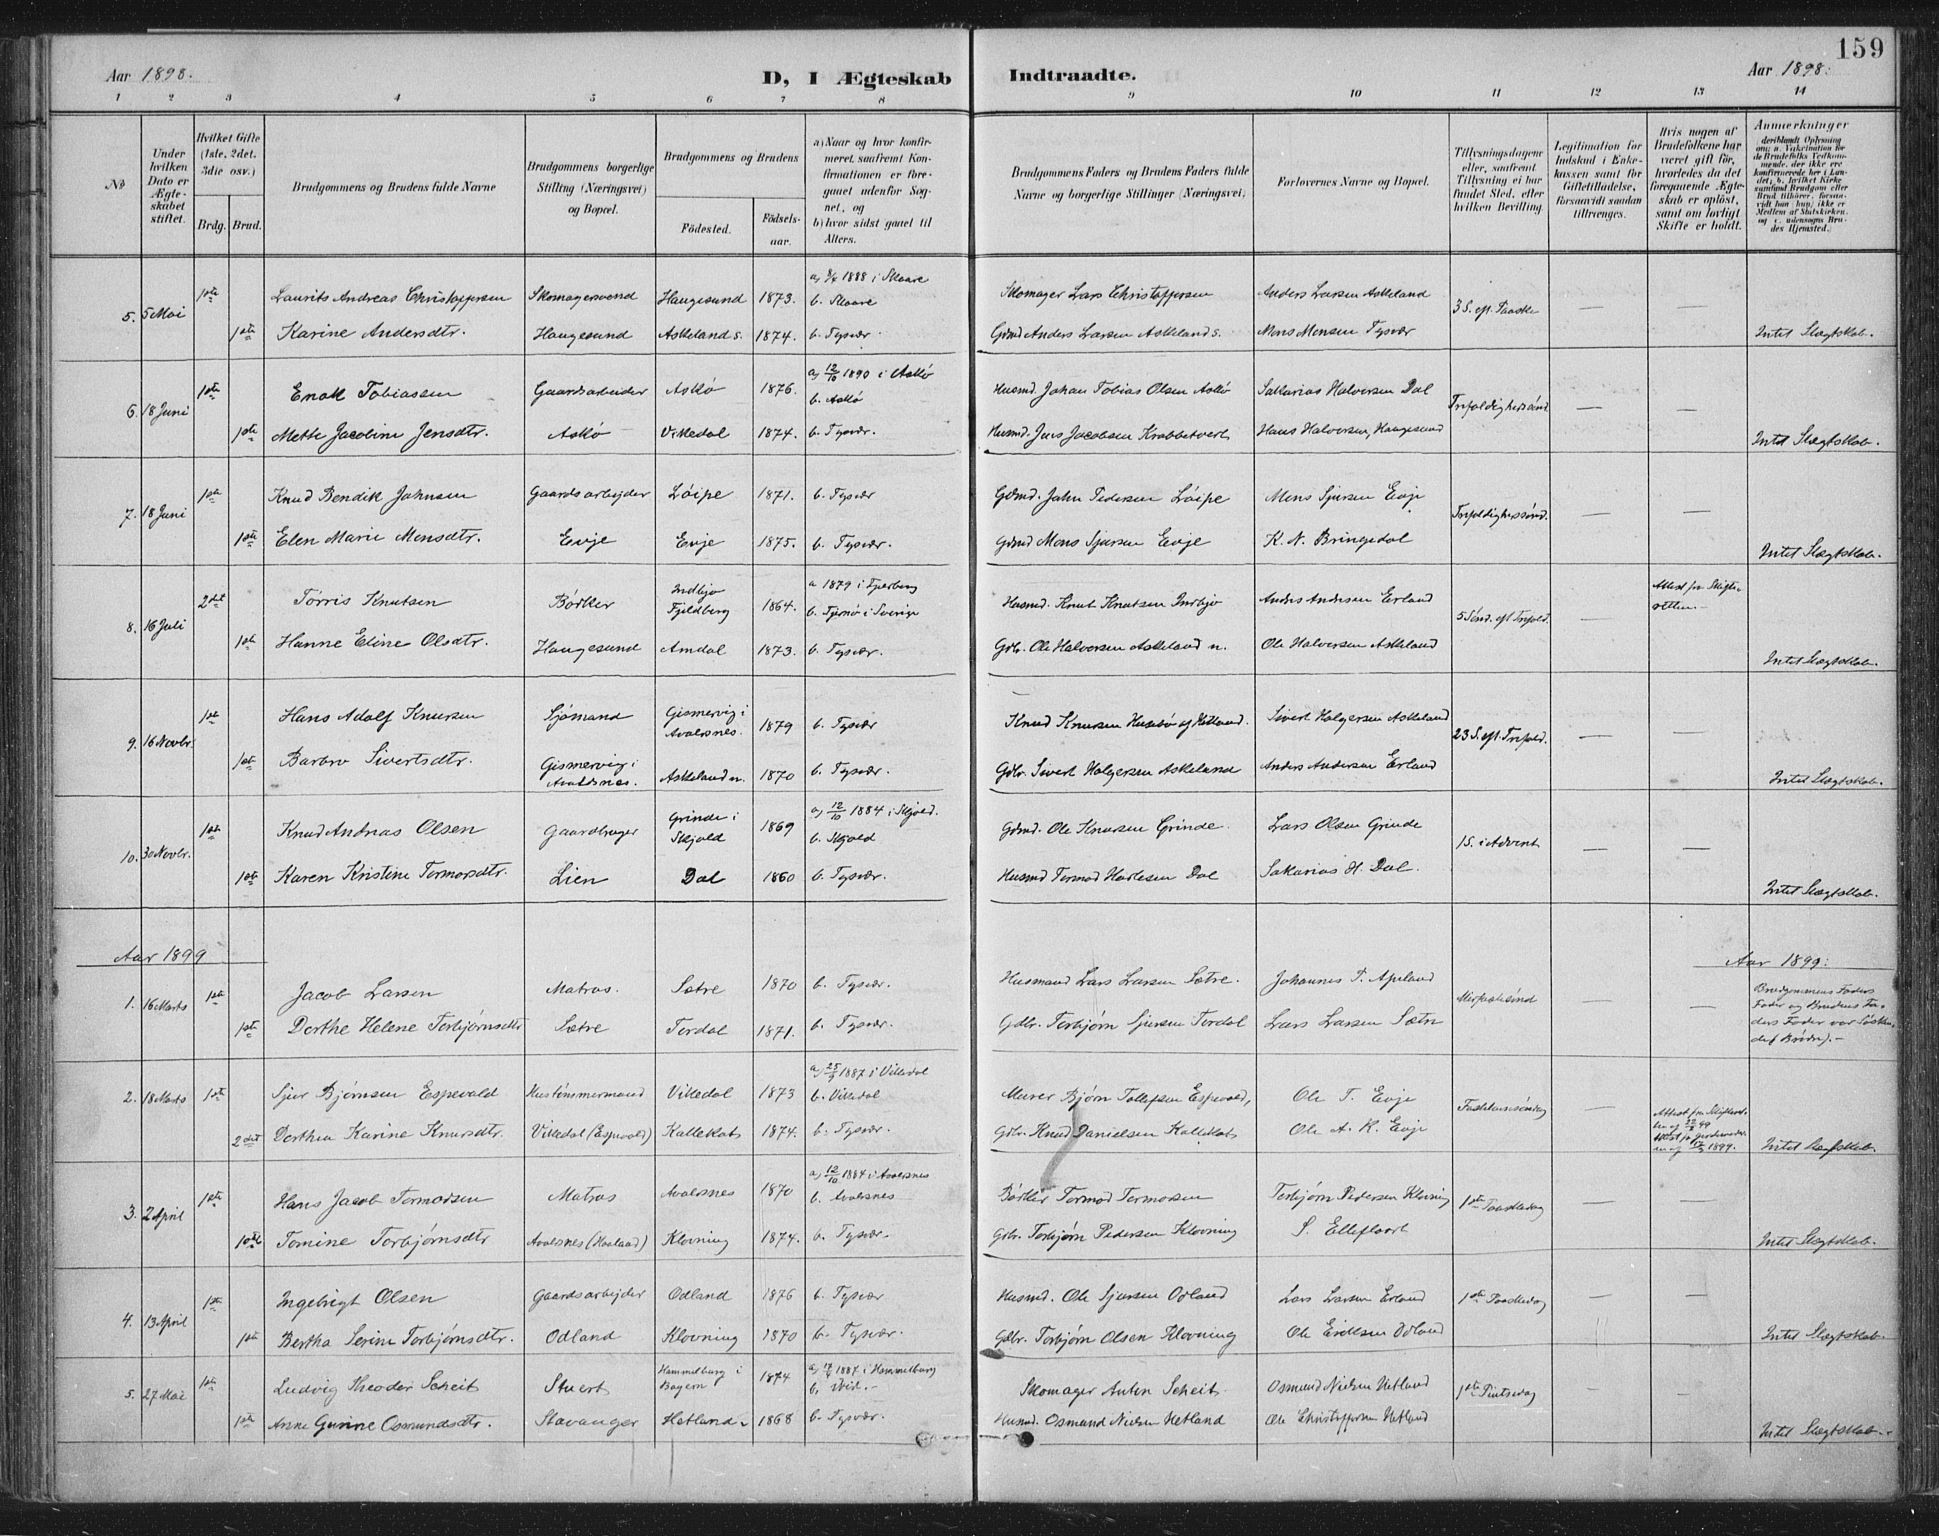 159
Aar 1898.
D, I Ægteskab Indtraadte.
Aar 1898.
1 2 3 4 5 6 7 8 9 10 11 12 13 14
No
Under hvilken Dato er Ægteskabet stiftet.
Hvilket Gifte (1ste, 2det, 3die osv.)
Brdg. Brud.
Brudgommens og Brudens fulde Navne
Brudgommens borgerlige Stilling (Næringsvei) og Bopæl.
Brudgommens og Brudens
Fødested. Fødselsaar.
a) Naar og hvor konfirmeret, saafremt Konfirmationen er foregaaet udenfor Sognet, og
b) hvor sidst gaaet til Alters.
Brudgommens Faders og Brudens Faders fulde Navne og borgerlige Stillinger (Næringsvei)
Forlovernes Navne og Bopæl.
Tillysningsdagene eller, saafremt Tillysning ei har fundet Sted, efter hvilken Bevilling.
Legitimation for Indskud i Enkekassen samt for Giftetilladelse, forsaavidt saadan tiltrænges.
Hvis nogen af Brudefolkene har været gift før, hvorledes da det foregaaende Ægteskab er opløst, samt om lovligt Skifte er holdt.
Anmærkninger
5. 5 Mai 1ste Laurits Andreas Christoffersen Skomagersvend Haugesund 1873. a) 8/4 1888 i Skaare b. Skaare Skomager Lars Christoffersen Anders Larsen Askeland 3 S. eft. Paaske — —
1ste Karine Andersdtr. Haugesund Askeland s. 1874. b. Tysvær Gdmd Anders Larsen Askeland s. Mons Monsen Tysvær Intet Slægtskab.
6. 18 Juni 1ste Enok Tobiassen Gaardsarbeider Askø 1876. a) 12/10 1890 i Askø b. Askø Husmd. Johan Tobias Olsen Askø Sakarias Halvorsen Dal Trefoldighedssønd. — —
1ste Mette Jacobine Jensdtr. Askø Vikedal 1874. b. Tysvær. Husmd. Jens Jacobsen Krabbetveit Hans Halvorsen, Haugesund Intet Slægtskab.
7. 18 Juni 1ste Knud Bendik Johnsen Gaardsarbejder Løipe 1871. b. Tysvær Gdmd. John Pedersen Løipe Mons Sjursen Evje Trefoldighedssønd. — —
1ste Elen Marie Monsdtr. Evje Evje 1875. b. Tysvær. Gdmd Mons Sjursen Evje K. N. Bringedal Intet Slægtskab.
8. 16 Juli 2det Tørris Knutsen Bødker Indbjo Fjeldberg 1864. a 1879 i Fjelberg b. Tjernø i Sverige Husmd. Knut Knutsen Indbjo Anders Andersen Erland 5 Sønd. eft. Trefold. — Attest fra Skifteretten
1ste Hanne Eline Olsdtr. Haugesund Amdal 1873. b. Tysvær. Gdbr. Ole Halvorsen Askeland n. Ole Halvorsen Askeland Intet Slægtskab.
9. 16 Novbr. 1ste Hans Adolf Knutsen Sjømand Gismervig i Avaldsnes. 1879 b. Tysvær Knud Knutsen Husebø af Hetland. Sivert Holgersen Askeland 23 S. eft. Trefold. — —
1ste Barbro Sivertsdtr. Gismervig i Avaldsnes. Askeland n. 1870 b. Tysvær. Gdbr. Sivert Holgersen Askeland Anders Andersen Erland Intet Slægtskab.
10. 30 Novbr. 1ste Knud Andreas Olsen Gaardbruger Grinde i Skjold 1869 a) 12/10 1884 i Skjold. b. Skjold Gdmd. Ole Knutsen Grinde. Lars Olsen Grinde 1 S. i Advent — —
1ste Karen Kristine Tormodsdtr. Lien Dal 1860 b. Tysvær. Husmd Tormod Hartesen Dal Sakarias H. Dal. Intet Slægtskab.
Aar 1899 Aar 1899.
1. 16 Marts 1ste Jacob Larsen Matros. Sætre 1870 b. Tysvær. Husmand Lars Larsen Sætre. Johannes T. Apeland — — Brudgommens Faders Fader og Brudens Faders Fader var Søskende (Brødre). —
1ste Dorthe Helene Torbjørnsdtr Sætre Tordal 1871. b. Tysvær. Gdbr. Torbjørn Sjursen Tordal Lars Larsen Sætre
2. 18 Marts 1ste Sjur Bjørnsen Espevold Hustømmermand Vikedal 1873 a) 25/9 1887 i Vikedal b. Vikedal Murer Bjørn Tollefsen Espevold, Ole T. Evje Fastelavnssøndag —
2det Dorthea Karine Knutsdtr. Vikedal (Espevold) Kallekot 1874. b. Tysvær. Gdbr. Knud Danielsen Kallekot Ole A. K. Evje Intet Slægtskab.
3. 2 April 1ste Hans Jacob Tormodsen Matros Avaldsnes 1870 a) 12/10 1884 i Avaldsnes b. Avaldsnes Bødker Tormod Tormodsen Torbjørn Pedersen Klovning 1ste Paaskedag — —
1ste Tomine Torbjørnsdtr Avaldsnes (Haaland) Klovning 1874. b. Tysvær. Gdbr. Torbjørn Pedersen Klovning S. Elleflaat Intet Slægtskab.
4. 13 April 1ste Ingebrigt Olsen Gaardsarbejder Odland 1876 b. Tysvær Husmd. Ole Sjursen Odland Lars Larsen Erland 1ste Paaskedag — —
1ste Bertha Serine Torbjørnsdtr. Odland Klovning 1870 b. Tysvær. Gdbr. Torbjørn Olsen Klovning Ole Eriksen Odland Intet Slægtskab.
5. 27 Mai 1ste Ludvig Theodor Scheit Stuert Hammelburg i Bayern 1874 1887 i Hammelburg b. ibid. — Skomager Anton Scheit Osmund Nielsen Hetland 1ste Pintsedag — —
1ste Anne Gurine Osmundsdtr. Stavanger Hetland 1868 b. Tysvær. Husmd. Osmund Nielsen Hetland Ole Christoffersen Hetland Intet Slægtskab.